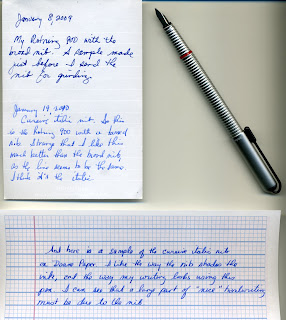 January 8, 2009
My Rotring 900 with the
broad nib. A sample made
just before I send the
nib for grinding.
January 19, 2090
Cursive italic nib. So this
is the Rotring 900 with a broad
nib. Strange that I like this
much better than the broad nib,
as the line seems to be the same.
I think it's the italic.
And here is a sample of the cursive italic nib
on Doane Paper. I like the way the nib shades the
ink, and the way my writing looks using this
pen. I can see that a large part of "nice" handwriting
must be due to the nib.